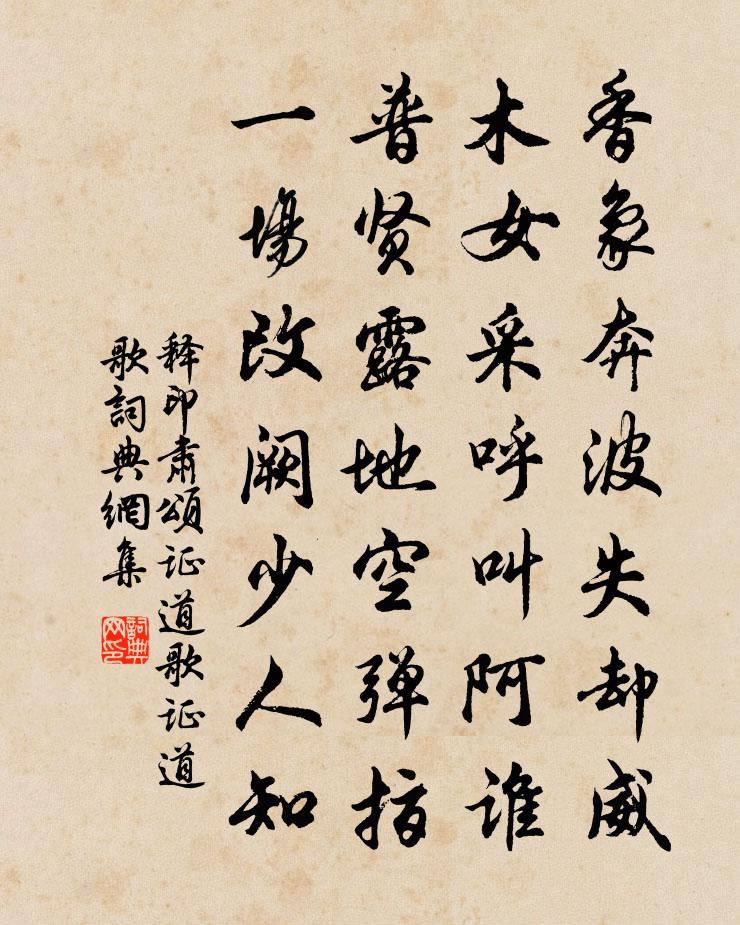 香象奔波失却威
木女采呼叫阿谁
普贤露地空弹指
一場改阙少人知
释印肃頌证道歌证道
歌詞典網集
詞典网印